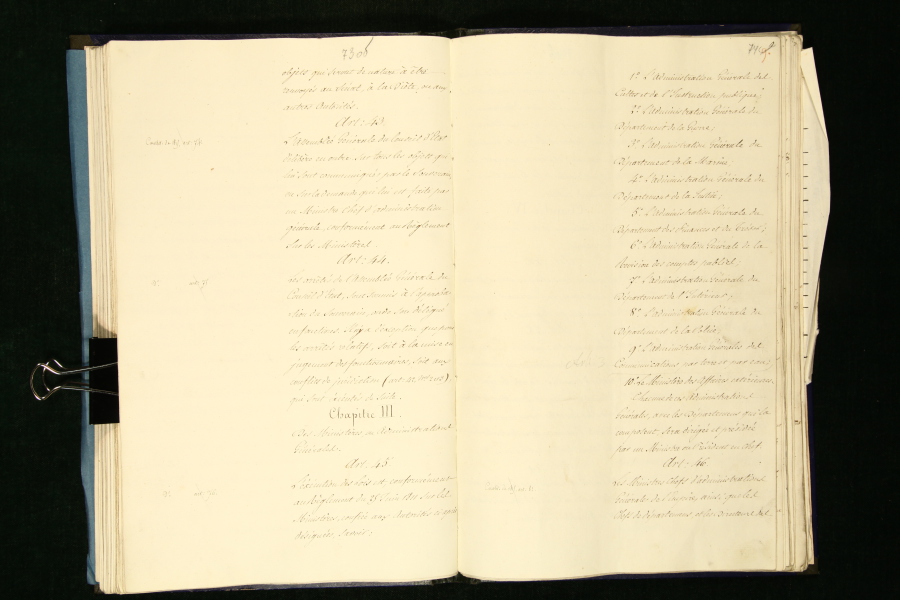 730
objets qui seront de nature à être
renvoyés au Sénat, à la Diète, ou aux
autres autorités.
Art: 43.
L'assemblée Générale du Conseil d'Etat
délibère en outre sur tous les objets qui
lui sont communiqués par le Souverain,
ou sur la demande qui lui est faite par
un Ministre Chef d'administration
générale, conformément au Règlement
sur les Ministères.
Art: 44.
Les arrêtés de l'assemblée Générale du
Conseil d'Etat, sont soumis à
Souverain, ou de son délégué
en fonctions. Il y a exception pour
les arrêtés relatifs, soit à la mise en
jugement des fonctionnaires, soit aux
conflits de juridiction
qui sont exécutés de suite.
Chapitre III.
Des Ministères ou Administrations
Générales.
Art: 45
L'exécution des lois est, conformément
au Règlement du 25 Juin 1811 sur les
Ministères, confiée aux autorités ci-après
désignées, savoir:
1° L'administration Générale des
Cultes et de l'Instruction publique;
2° L'administration Générale du
Département de la Guerre;
3° L'administration Générale du
Département de la Marine;
4° L'administration Générale du
Département de la Justice;
5° L'administration Générale du
Département des Finances et du Trésor;
6° L'administration Générale de la
Révision des comptes publics;
7° L'administration Générale du
Département de l'Intérieur;
8° L'administration Générale du
Département de la Police;
9° L'administration Générale des
Communications par terre et par eau;
10° Le Ministère des Affaires extérieures.
Chacune des Administrations
Générales, avec les Départemens qui la
composent, sera dirigée et présidée
par un Ministre ou Président en chef.
Art: 46
Les Ministres Chefs d'administrations
Générales de Russie, ainsi que les
Chefs de départemens, et les Directeurs des